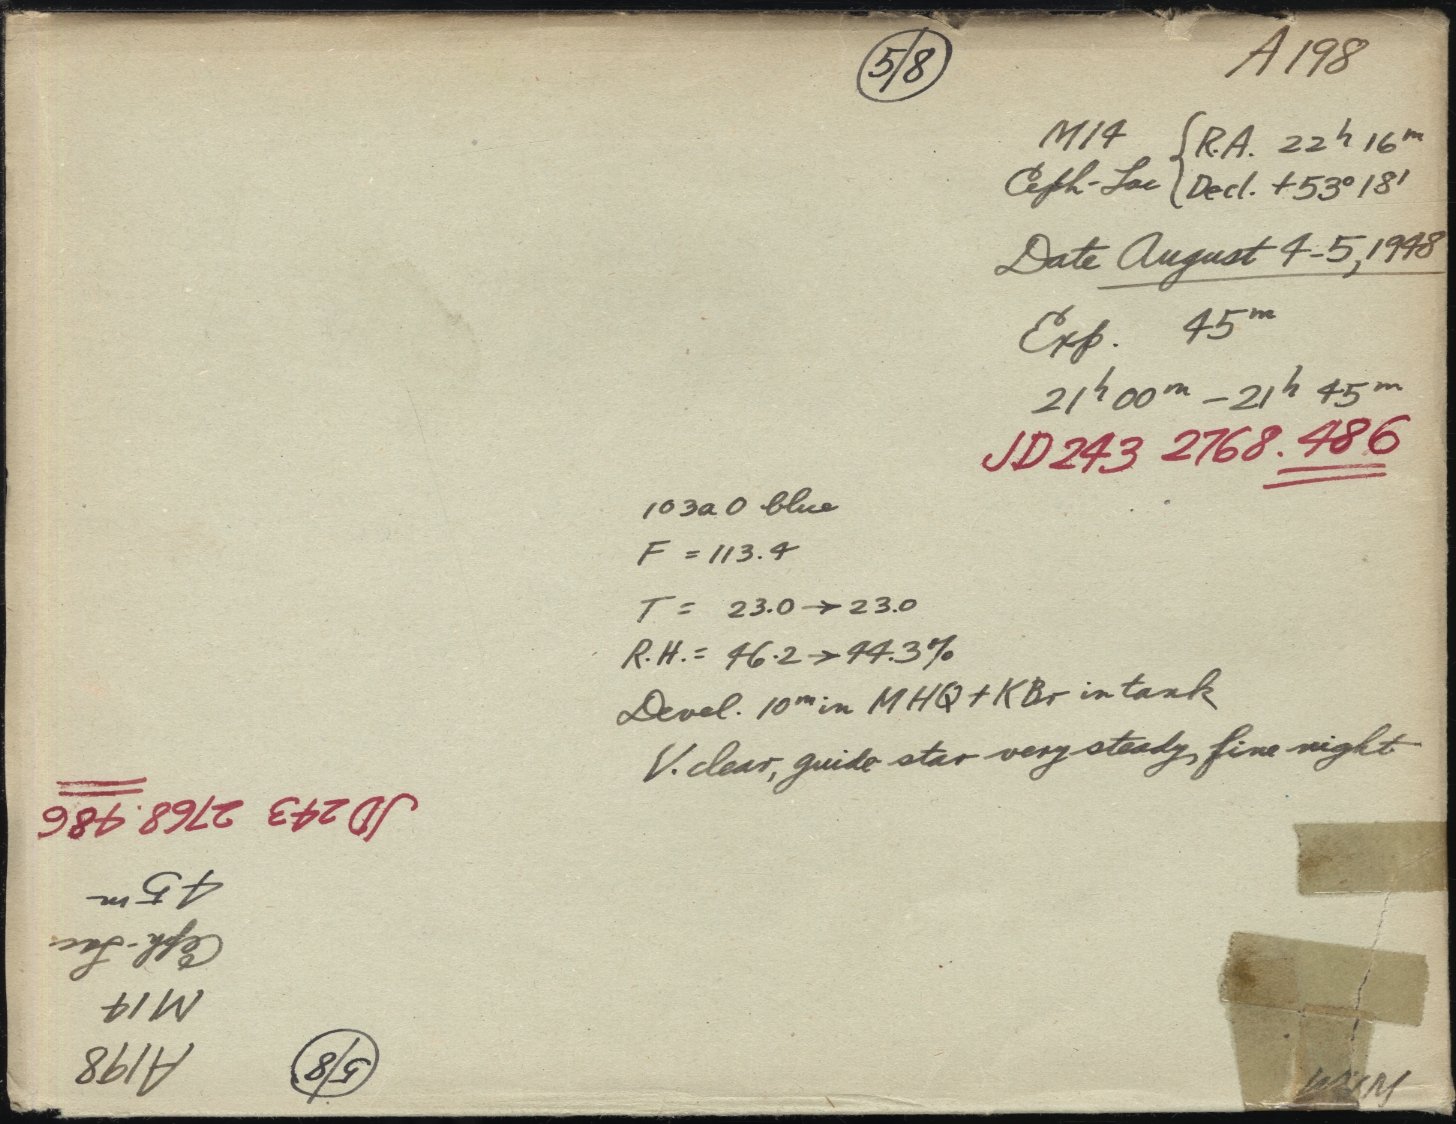 5/8
A198
M14 { R.A. 22h 16m
Ceph-Lac { Decl. +53° 18'
Date August 4-5, 1948
Exp. 45m
21h 00m - 21h 45m
JD 243 2768.486
103a O blue
F = 113.4
T = 23.0 → 23.0
R.H. = 46.2 → 44.3%
Devel. 10m in MHQ + KBr in tank
V. clear, guide star very steady, fine night
JD 243 2768.486
45m
Ceph-Lac
M14
A198
5/8